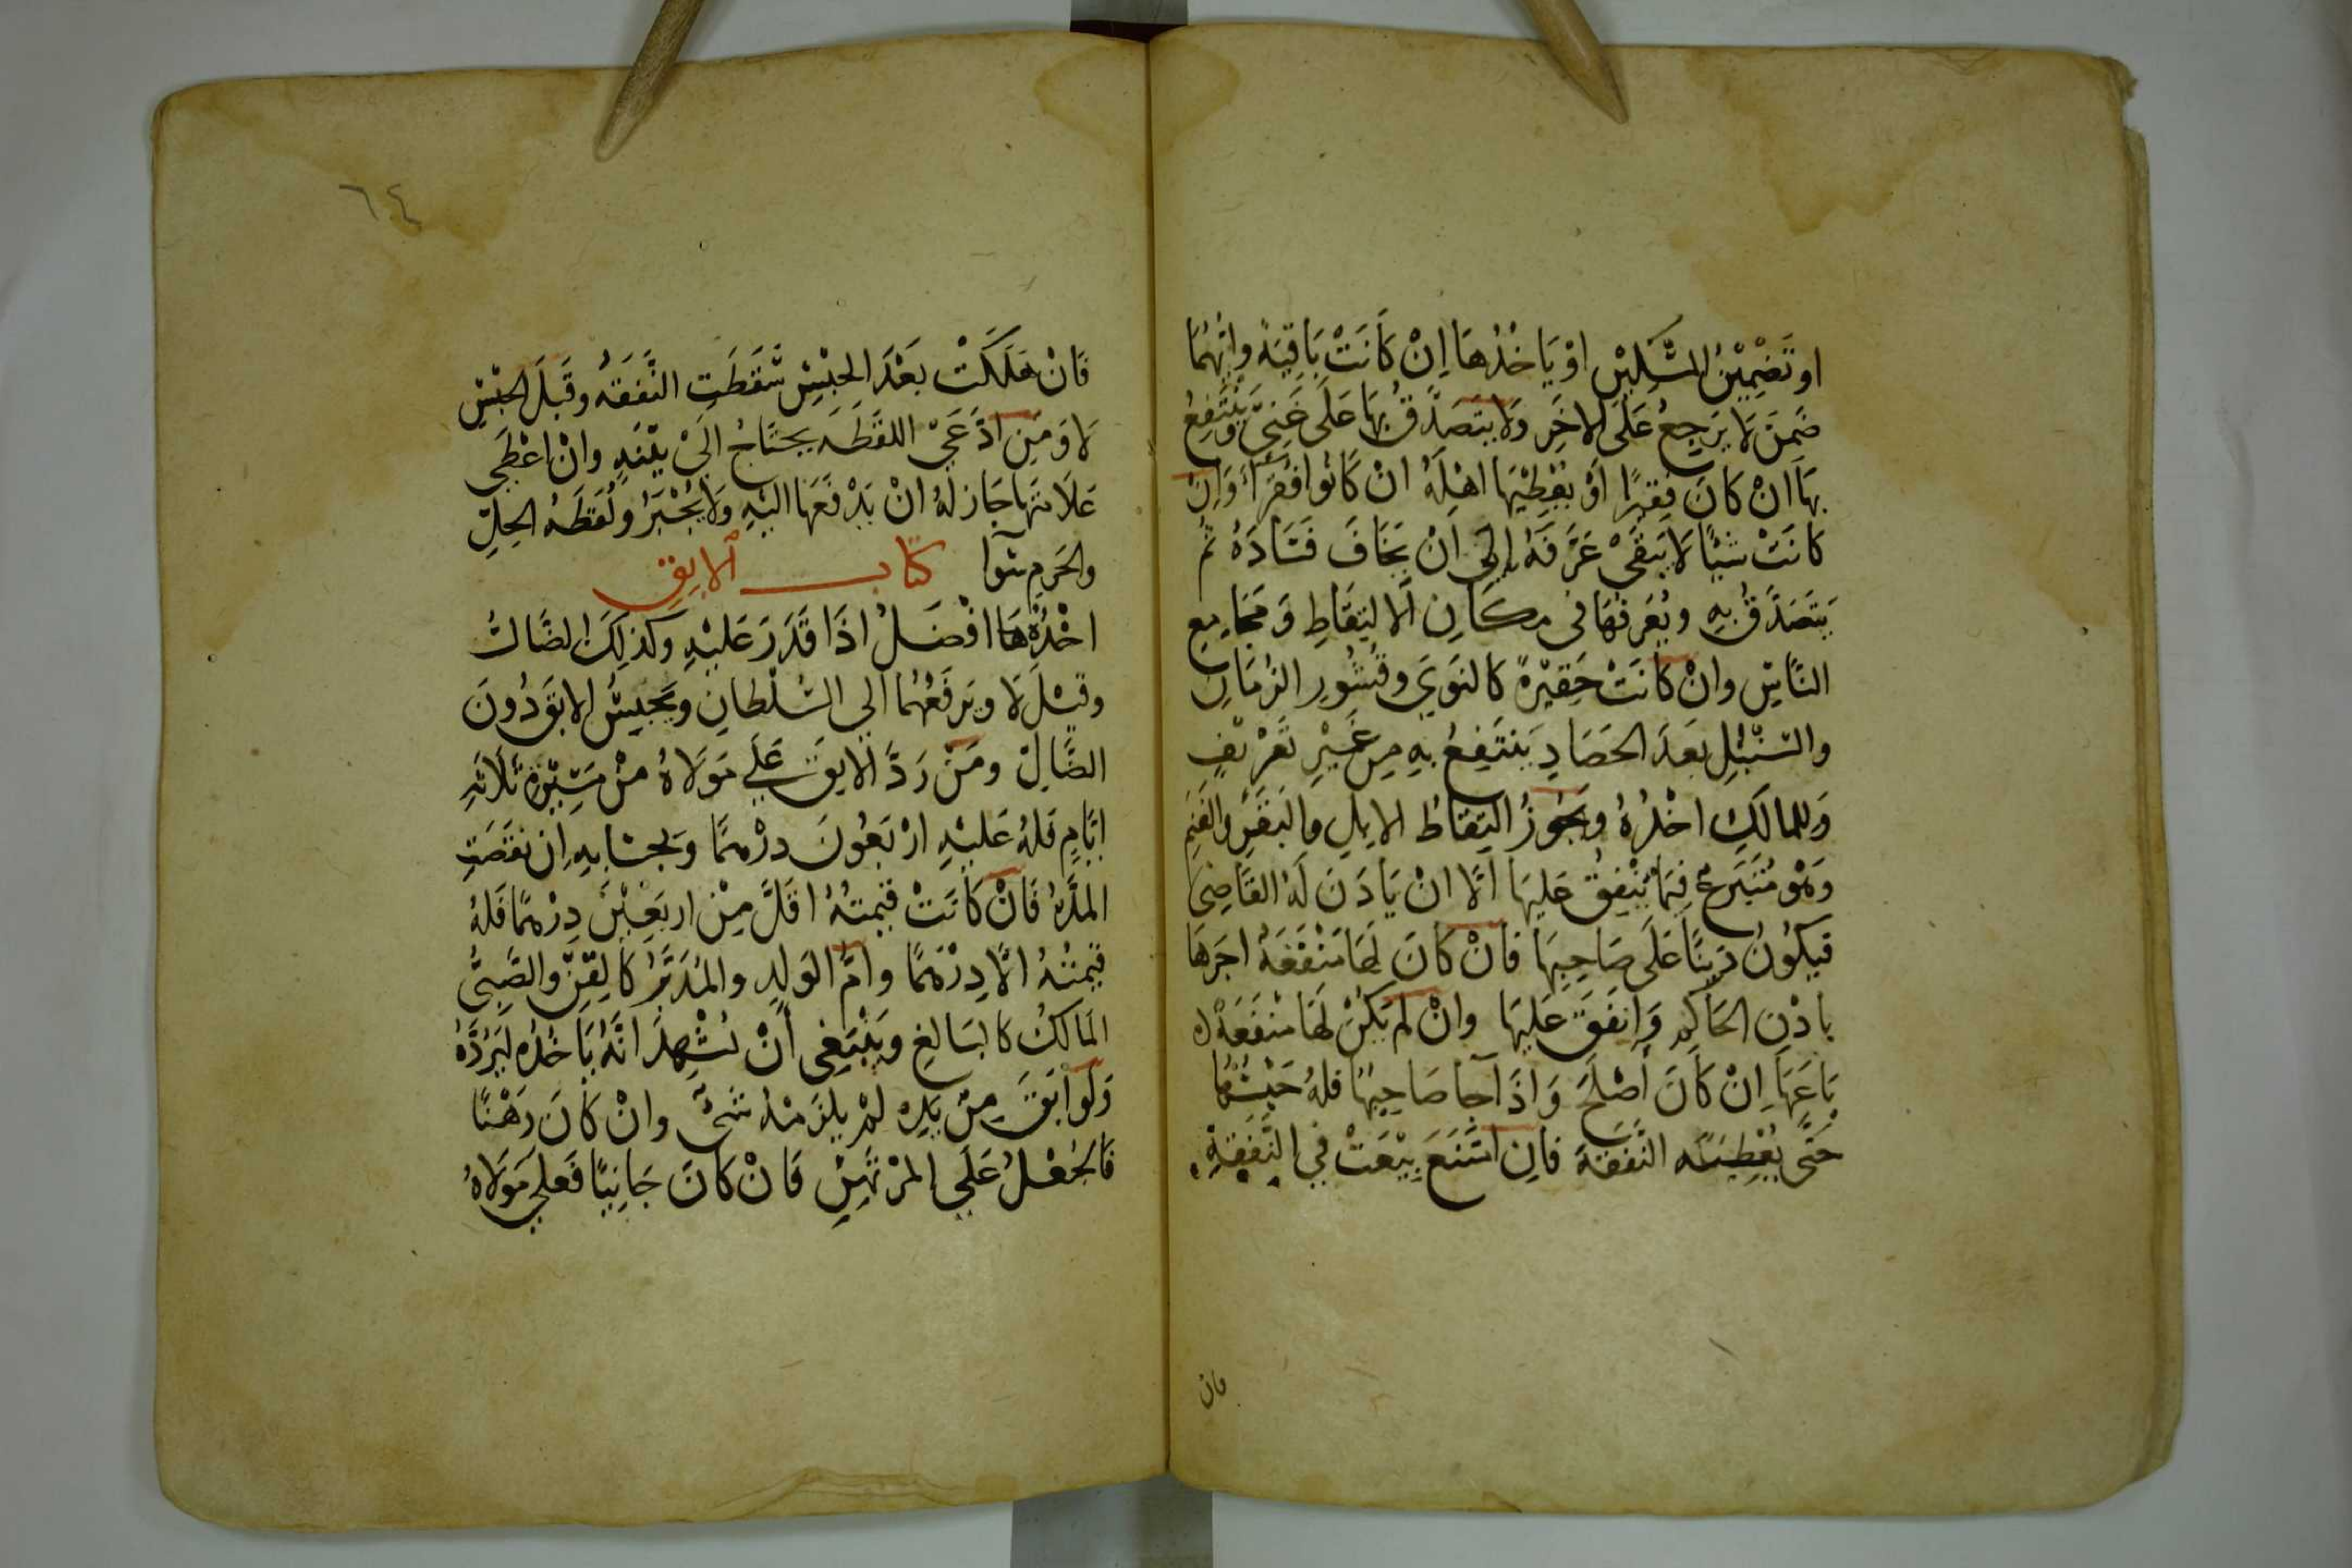 او تضمين المسكين او ياخذها ان كانت باقية وايهما
ضمن لا يرجع على الاخر ولا يتصدق بها على غني وينتفع
بها ان كان فقيرا او يعطيها اهله ان كانوا فقراء وان
كانت شيئا لا يبقى عرفه الى ان يخاف فساده ثم
يتصدق به ويعرفها فى مكان الالتقاط ومجامع
الناس وان كانت حقيرة كالنوى وقشور الرمان
والسنبل بعد الحصاد ينتفع به من غير تعريف
وللمالك اخذه ويجوز التقاط الابل والبقر والغنم
وهو متبرع فيما ينفق عليها الا ان ياذن له القاضى
فيكون دينا على صاحبها فان كان لها منفعة اجرها
باذن الحاكم وانفق عليها وان لم يكن لها منفعة
باعها ان كان اصلح واذا جا صاحبها فله حبسها
حتى يعطيه النفقة فان امتنع بيعت في النفقة
فان
٦٤
فان هلكت بعد الحبس سقطت النفقة وقبل الحبس
لا ومن ادعى اللقطة يحتاج الى بينة وان اعطى
علامتها جاز له ان يدفعها اليه ولا يجبر ولقطة الحل
والحرم سوا كتاب الابق
اخذها افضل اذا قدر عليه وكذلك الضال
وقيل لا ويرفعهما الي السلطان ويحبس الابق دون
الضال ومن رد الابق علي مولاه من مسيرة ثلاثة
ايام فله عليه اربعون درهما وبحسابه ان نقصت
المدة فان كانت قيمته اقل من اربعين درهما فله
قيمته الا درهما وام الولد والمدبر كالقن والصبى
المالك كالبالغ وينبغى ان يشهد انه ياخذه ليرده
ولو ابق من يده لم يلزمه شئ وان كان رهنا
فالجعل علي المرتهن فان كان جانيا فعلي مولاه